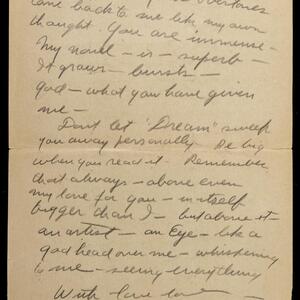 come back to me like my own
thought. You are immense -
My novel - is - superb -
It grows - bursts -
god - what you have given
me -
Don't let "Dream" sweep
you away personally. Be big
when you read it. Remember
that always - above even
my love for you - in itself
bigger than I - but above it -
an artist - an Eye - like a
god head over me - whispering
to me - seeing everything
With love love -